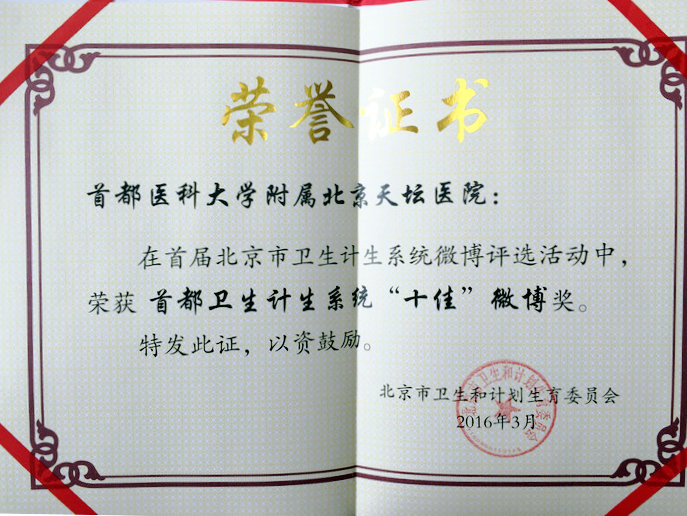 荣誉证书
首都医科大学附属北京天坛医院：
在首届北京市卫生计生系统微博评选活动中，
荣获 首都卫生计生系统“十佳”微博奖。
特发此证，以资鼓励。
北京市卫生和计划生育委员会
2016年3月